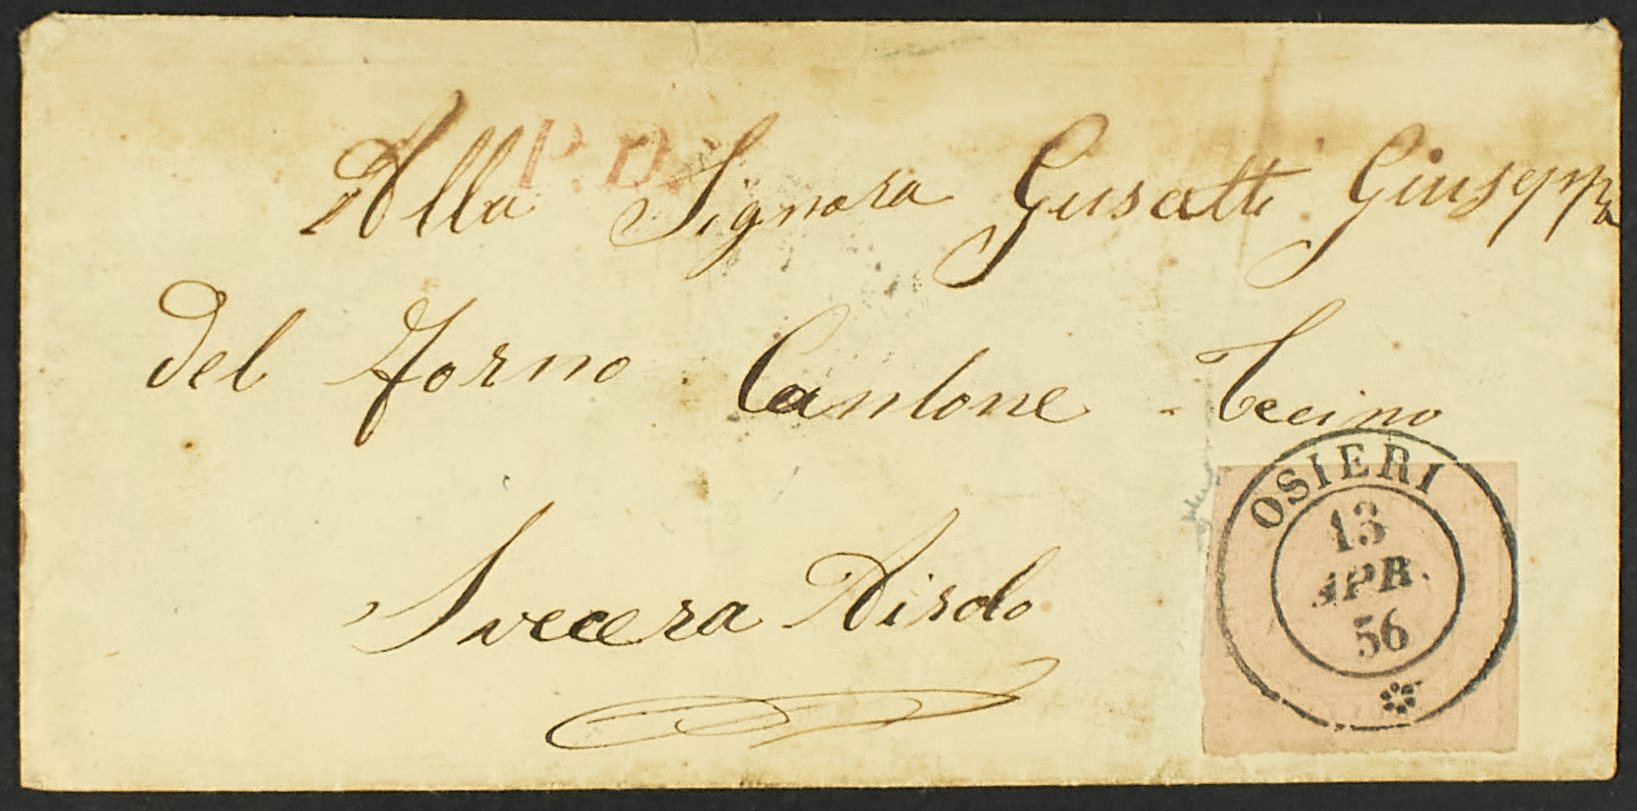 P.D.
Alla Signora Gusatti Giuseppa
Del Forno Cantone Tecino
Svecera Airolo
OSIERI
13
APR.
56